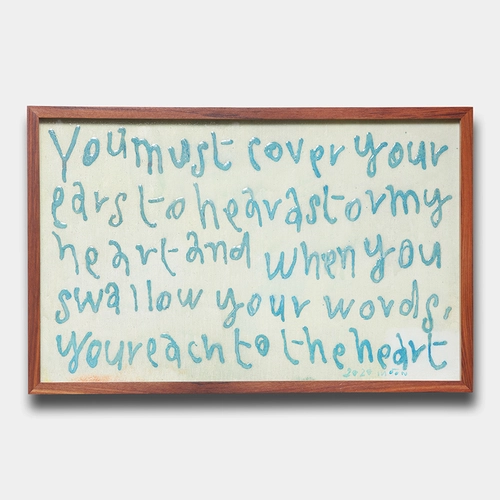 You must cover your
ears to hear a stormy
heart and when you
swallow your words,
you reach to the heart
2020